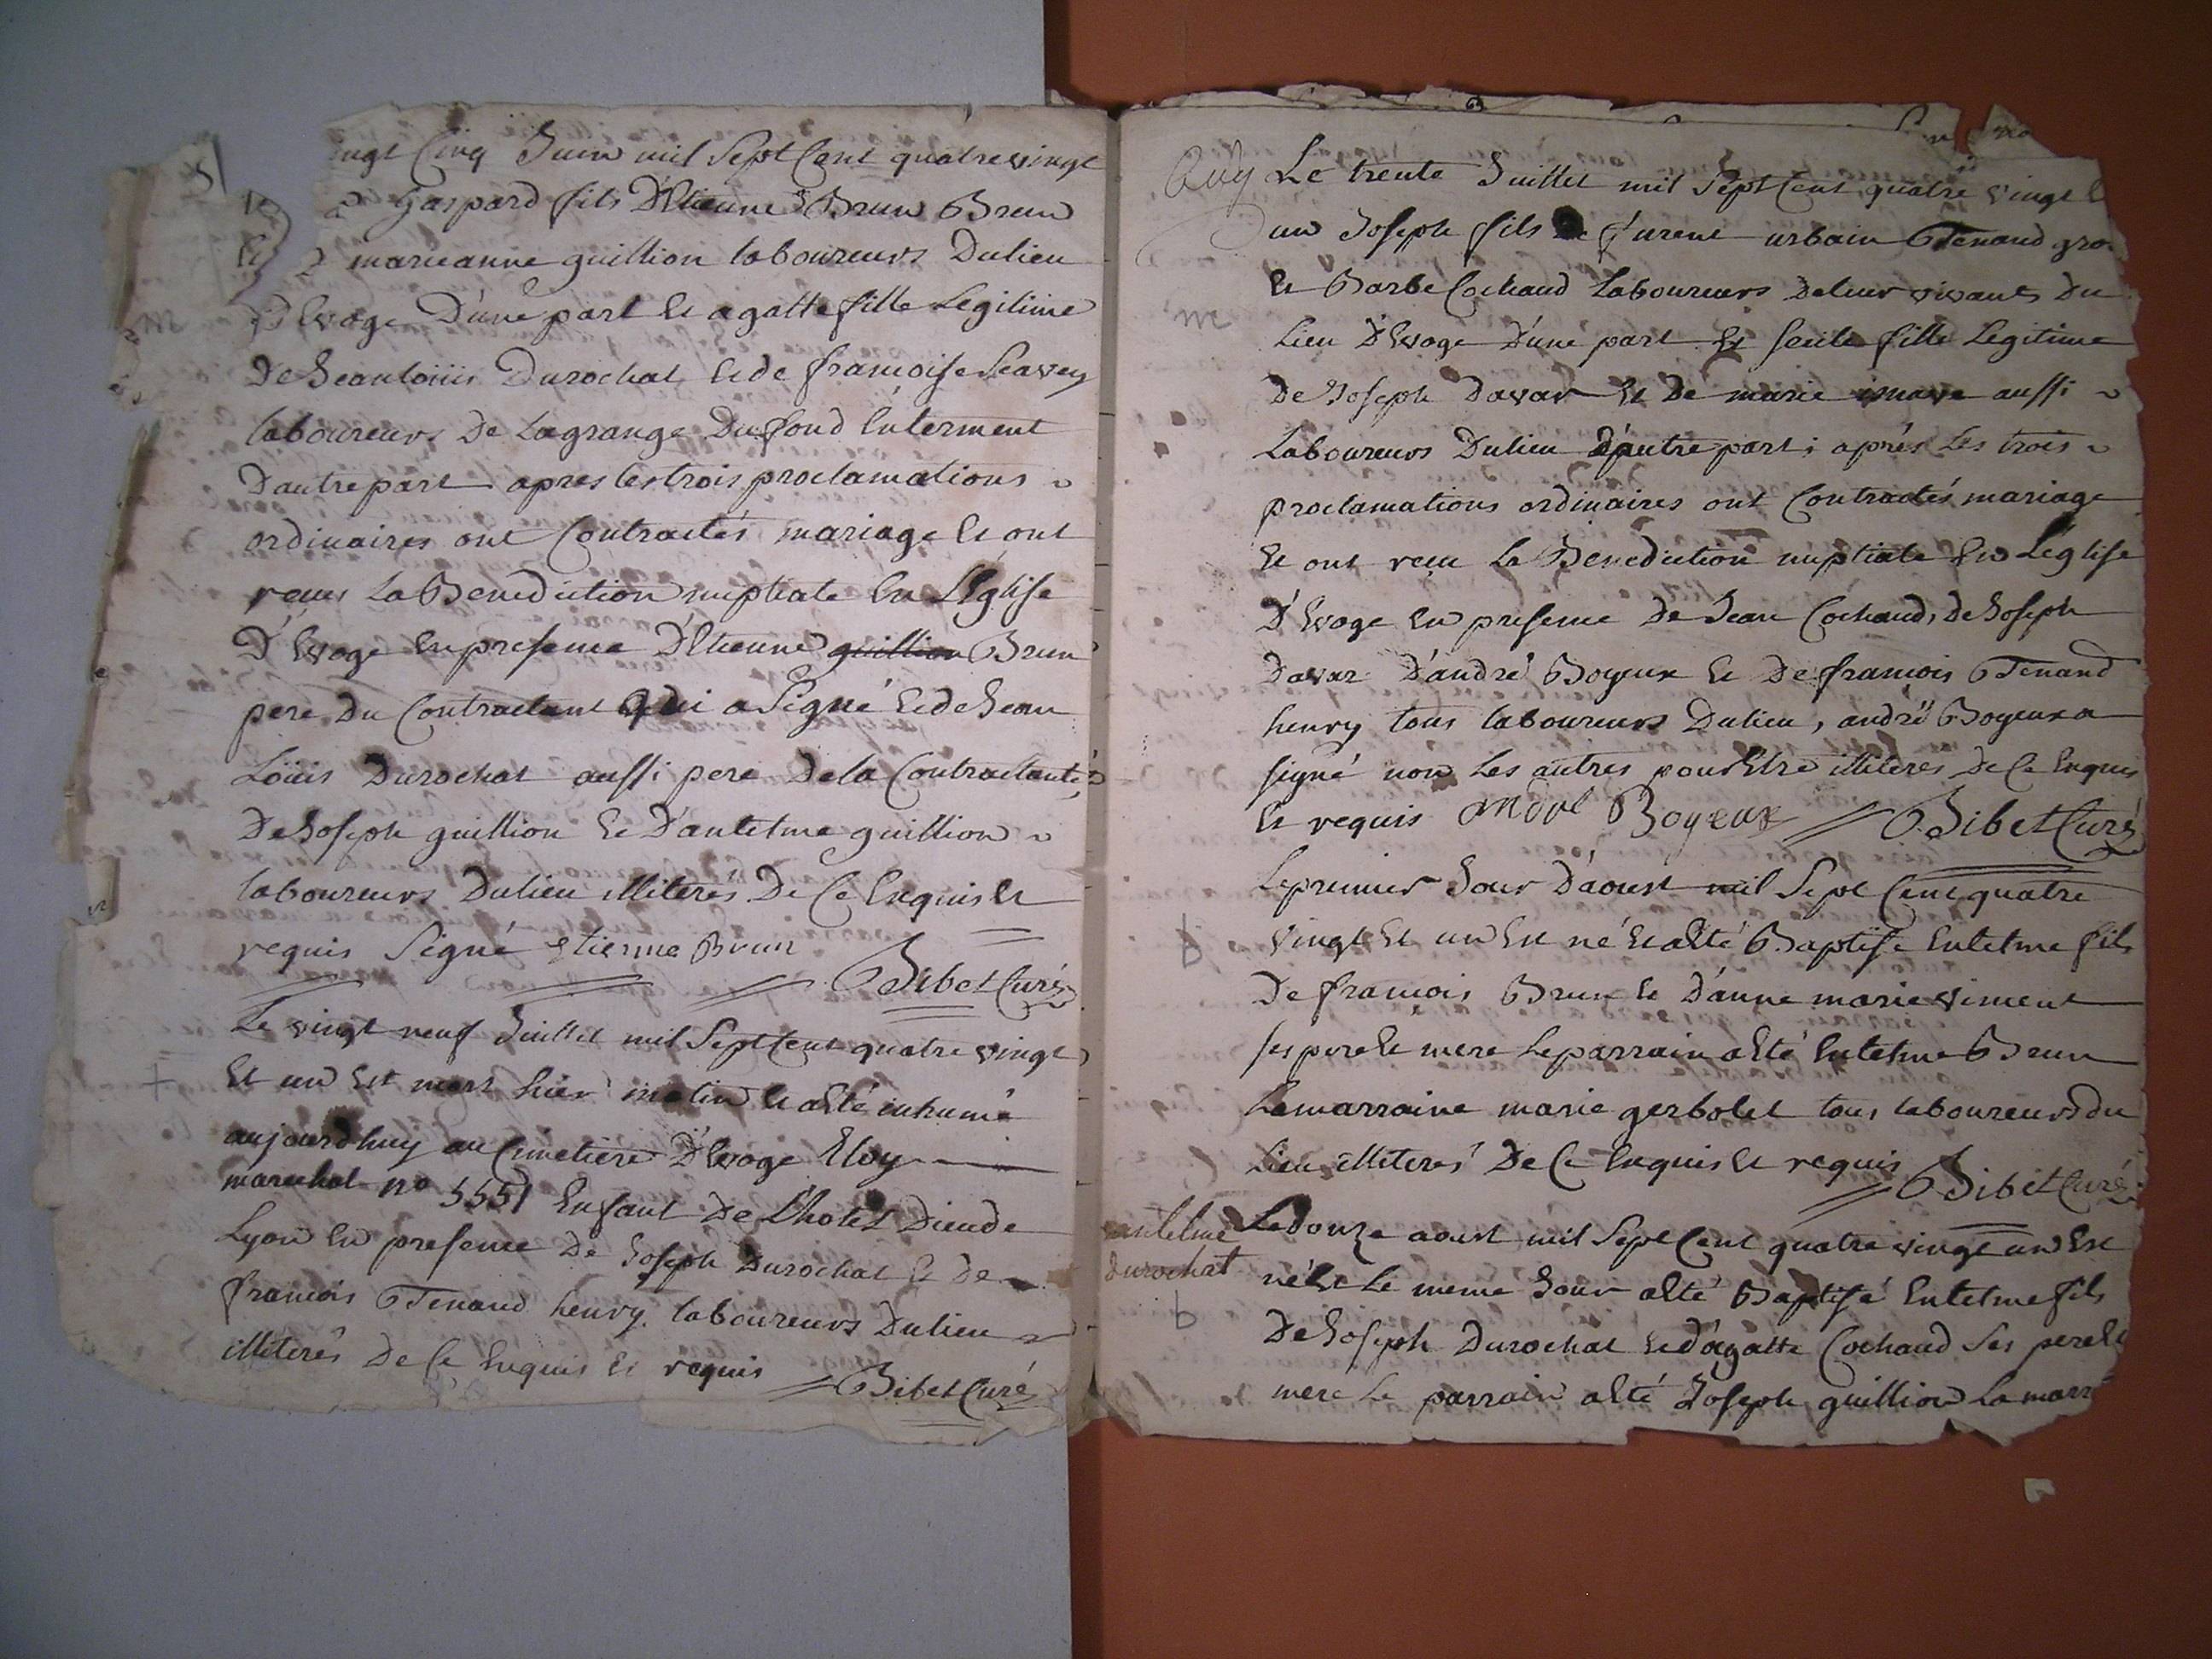 ingt Cinq Juin mil Sept Cent quatre vingt
Gaspard fils D'Etienne Brun Brun
marieanne guillion laboureurs Dulieu
D'Evoge D'une part Et agatte fille Legitime
De Jean loüis Durochat Et de francoise
laboureurs De Lagrange Du fond Enterment
D'autre part apres les trois proclamations
ordinaires ont Contractés mariage Et ont
reçus La Benediction nuptiale En L'Eglise
D'Evoge En presence D'Etienne guillion Brun
pere Du Contractant Qui a Signé Et de Jean
Loüis Durochat aussi pere De la Contractante,
De Joseph guillion Et D'antelme guillion
laboureurs Dulieu illiterés De Ce Enquis Et
requis Signé etienne Brun
Bibet Curé
Le vingt neuf Juillet mil Sept Cent quatre vingt
Et un Est mort hier matin Et a Eté inhumé
aujourdhuy au Cimetiere D'Evoge Eloy
marechal no 5551 Enfant De L'hotel Dieu de
Lyon En presence De Joseph Durochat Et De
francois Tenand henry laboureurs Dulieu
illiterés De Ce Enquis Et requis
Bibet Curé
Le trente Juillet mil Sept Cent quatre vingt
m
un Joseph fils De furent urbain Tenand
Et Barbe Cochaud Laboureurs De leur vivant Du
Lieu D'Evoge D'une part Et fille Legitime
De Joseph Davar Et De marie aussi
Laboureurs Dulieu d'autre part; aprés Les trois
proclamations ordinaires ont Contractés mariage
Et ont reçu La Benediction nuptiale En L'Eglise
D'Evoge En presence De Jean Cochaud, De Joseph
Davar D'andré Boyeux Et De francois Tenand
henry tous laboureurs Dulieu, andré Boyeux a
signé non Les autres pour Etre illiterés De Ce Enquis
Et requis Boyeux Bibet Curé
b
Le premier Jour D'aoust mil Sept Cent quatre
vingt Et un Est né Et a Eté Baptisé Entelme fils
De francois Brun Et D'anne marie viment
ses pere Et mere Le parrain a Eté Entelme Brun
La marraine marie gerbolet tous laboureurs du
Lieu illiterés De Ce Enquis Et requis
Bibet Curé
antelme
Durochat
b
Le douze aoust mil Sept Cent quatre vingt un Est
né Et Le meme Jour a Eté Baptisé Entelme fils
De Joseph Durochat Et d'agatte Cochaud Ses pere Et
mere Le parrain a Eté Joseph guillion La marr